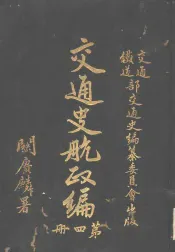 交通
鐵道部交通史編纂委員會出版
交通史航政編
第四冊
關賡麟署